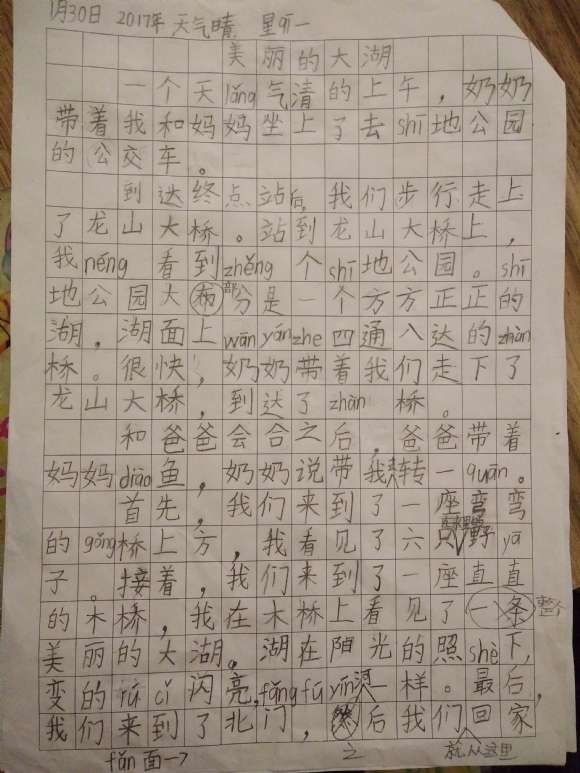 1月30日 2017年 天气晴 星qī一
美丽的大湖
一个天lǎng气清的上午，奶奶
带着我和妈妈坐上了去shī地公园
的公交车。
到达终点站后，我们步行走上
了龙山大桥。站到龙山大桥上，
我néng看到zhěng个shī地公园。shī
地公园大布部分是一个方方正正的
湖，湖面上wān yán zhe四通八达的zhàn
桥。很快，奶奶带着我们走下了
龙山大桥，到达了zhàn桥。
和爸爸会合之后，爸爸带着
妈妈diào鱼，奶奶说带我转一quān。
首先，我们来到了一座弯弯
的gǒng桥上方，我看见了六只野yā
子。接着，我们来到了一座直直
的木桥，我在木桥上看见了一条整个
美丽的大湖。湖在阳光的照shè下，
变的rú cǐ闪亮，fǎng fú yín河一样。最后，
我们来到了北门，后我们回家
之 就从这里
fǎn面→